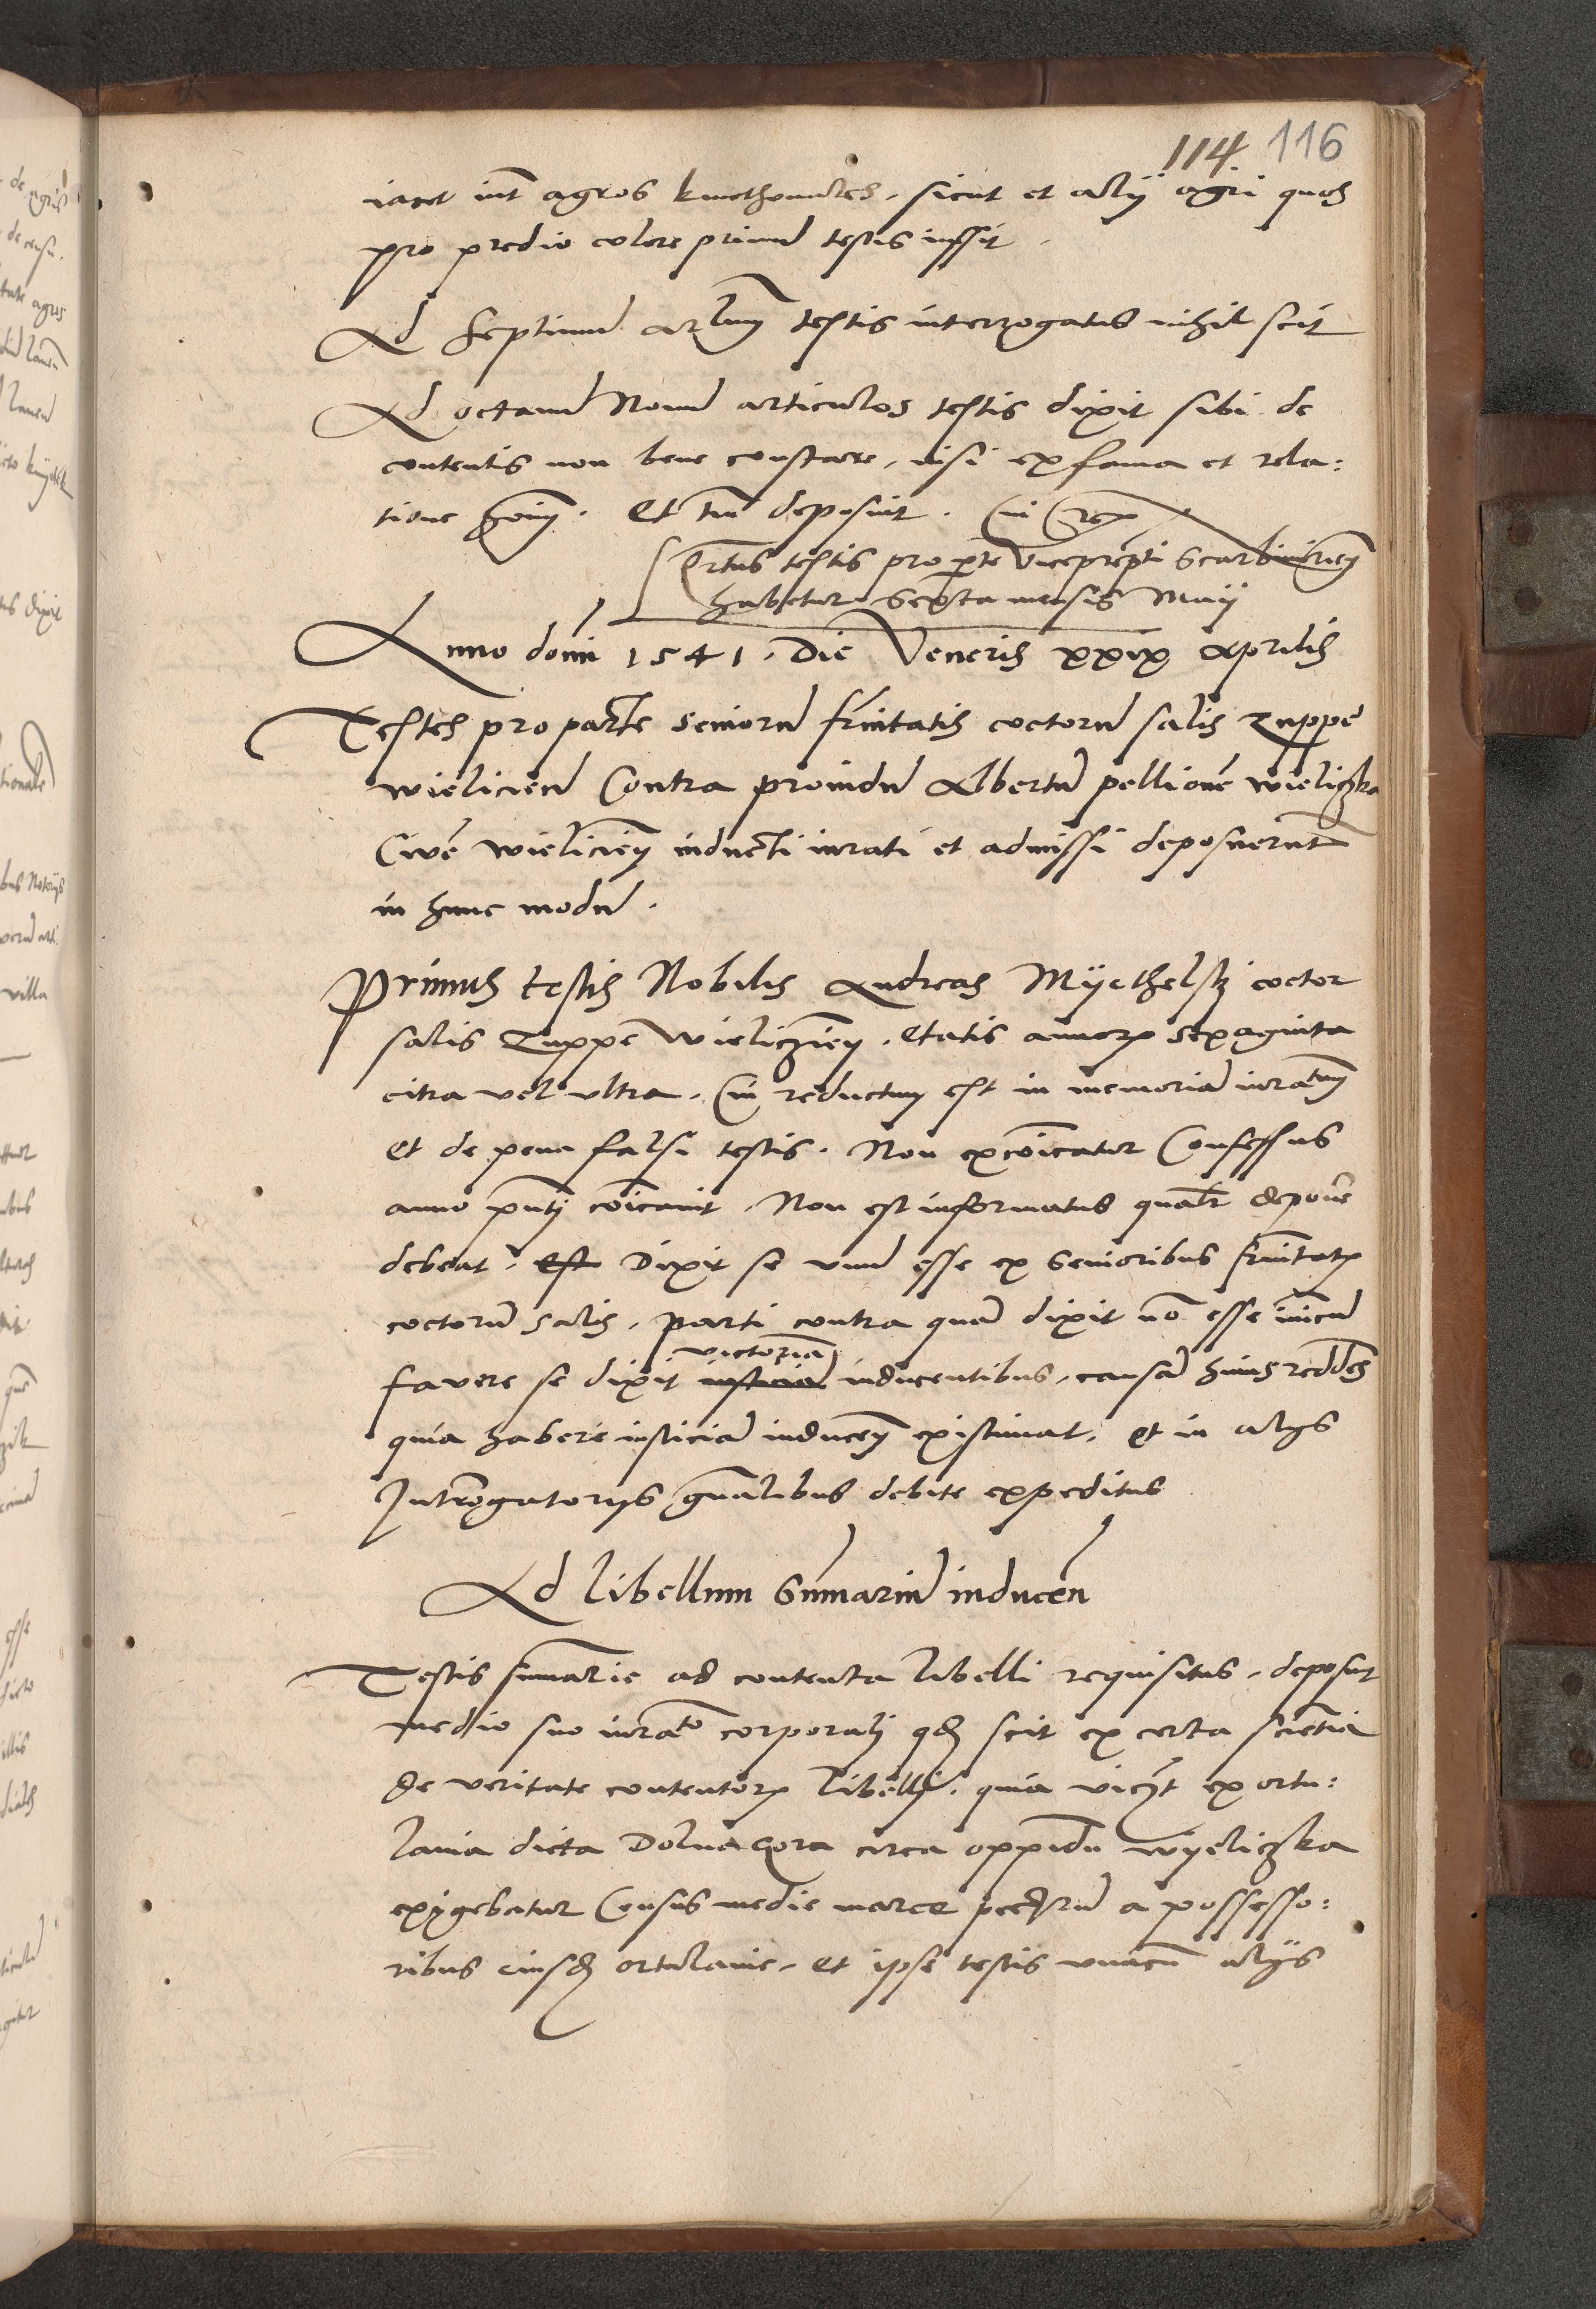 114. 116
iacet int agros kmethonales. sicut et alij agri quos
pro predio colere primus testis iussit.
Ad septimum arlum testis interrogatus nihil scit
Ad octauum Nonum articulos testis dixit sibi de
contentis non bene constare, nisi ex fama et rela:
tione hoim. Et tm deposuit.
testis pro parte viceprepti
habetur Sexta mensis Maij
Anno domi 1541. Die Veneris xxix Aprilis
Testes pro parte seniorum frnitatis coctorum salis Zuppe
wieliciens Contra prouidum Albertum pellionem wieliczka
Ciuem wieliciens inducti iurati et admissi deposuerunt
in hunc modum.
Primus testis Nobilis Andreas Myethelskj coctor
salis Zuppe Wielicziens. etatis annorum sexaginta
citra vel vltra. Cui reductum est in memoriam iuratum
et de pena falsi testis. Non excoicatur Confessus
anno pnti coicauit. Non est informatus qualr deponere
debeat. est Dixit se vnum esse ex Senioribus frnitatis
coctorum salis. parti contra quam dixit no esse inicum
fauere se dixit iusticiam victoriam inducentibus, causam huius reddens
quia habere iusticiam inducens existimat. et in alijs
Introgatorijs gnalibus debite expeditus
Ad libellum Summarium inducen
Testis summarie ad contenta libelli requisitus. deposuit
medio suo iurato corporali qd scit ex certa scientia
de veritate contentorum libelli. quia ex ortu:
lania dicta Dolna Gora circa oppidum wyeliczka
exigebatur Census medie marce a possesso:
ribus eiusd ortulanie. et ipse testis vnacum alijs